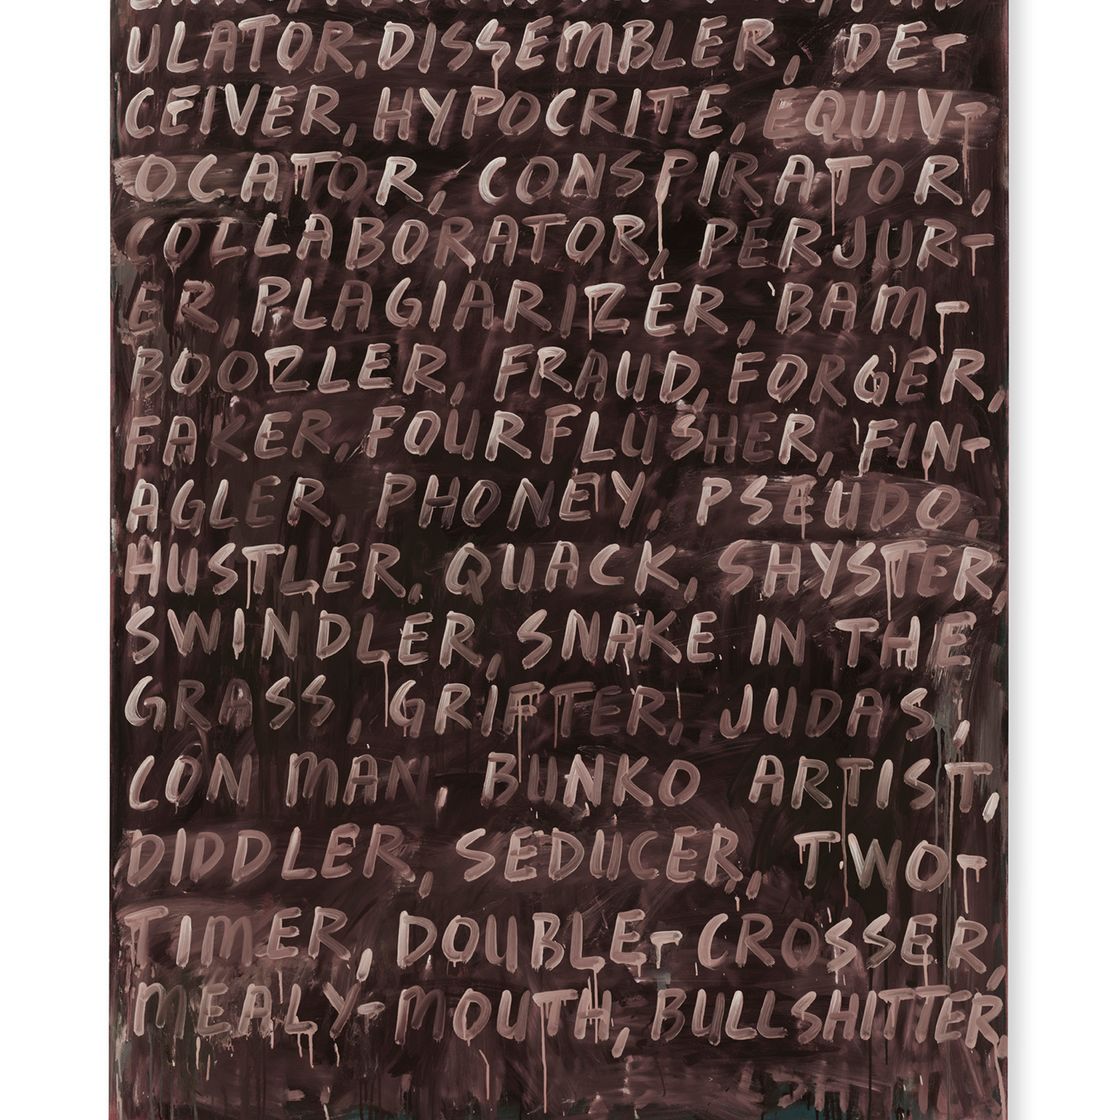 ULATOR, DISSEMBLER, DE-
CEIVER, HYPOCRITE, EQUIV-
OCATOR, CONSPIRATOR,
COLLABORATOR, PERJUR-
ER, PLAGIARIZER, BAM-
BOOZLER, FRAUD, FORGER,
FAKER, FOURFLUSHER, FIN-
AGLER, PHONEY, PSEUDO,
HUSTLER, QUACK, SHYSTER,
SWINDLER, SNAKE IN THE
GRASS, GRIFTER, JUDAS,
CON MAN, BUNKO ARTIST,
DIDDLER, SEDUCER, TWO-
TIMER, DOUBLE-CROSSER,
MEALY-MOUTH, BULLSHITTER,